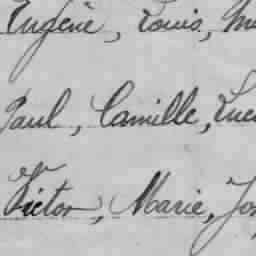 Eugène, Louis,
Paul, Camille,
Victor, Marie,